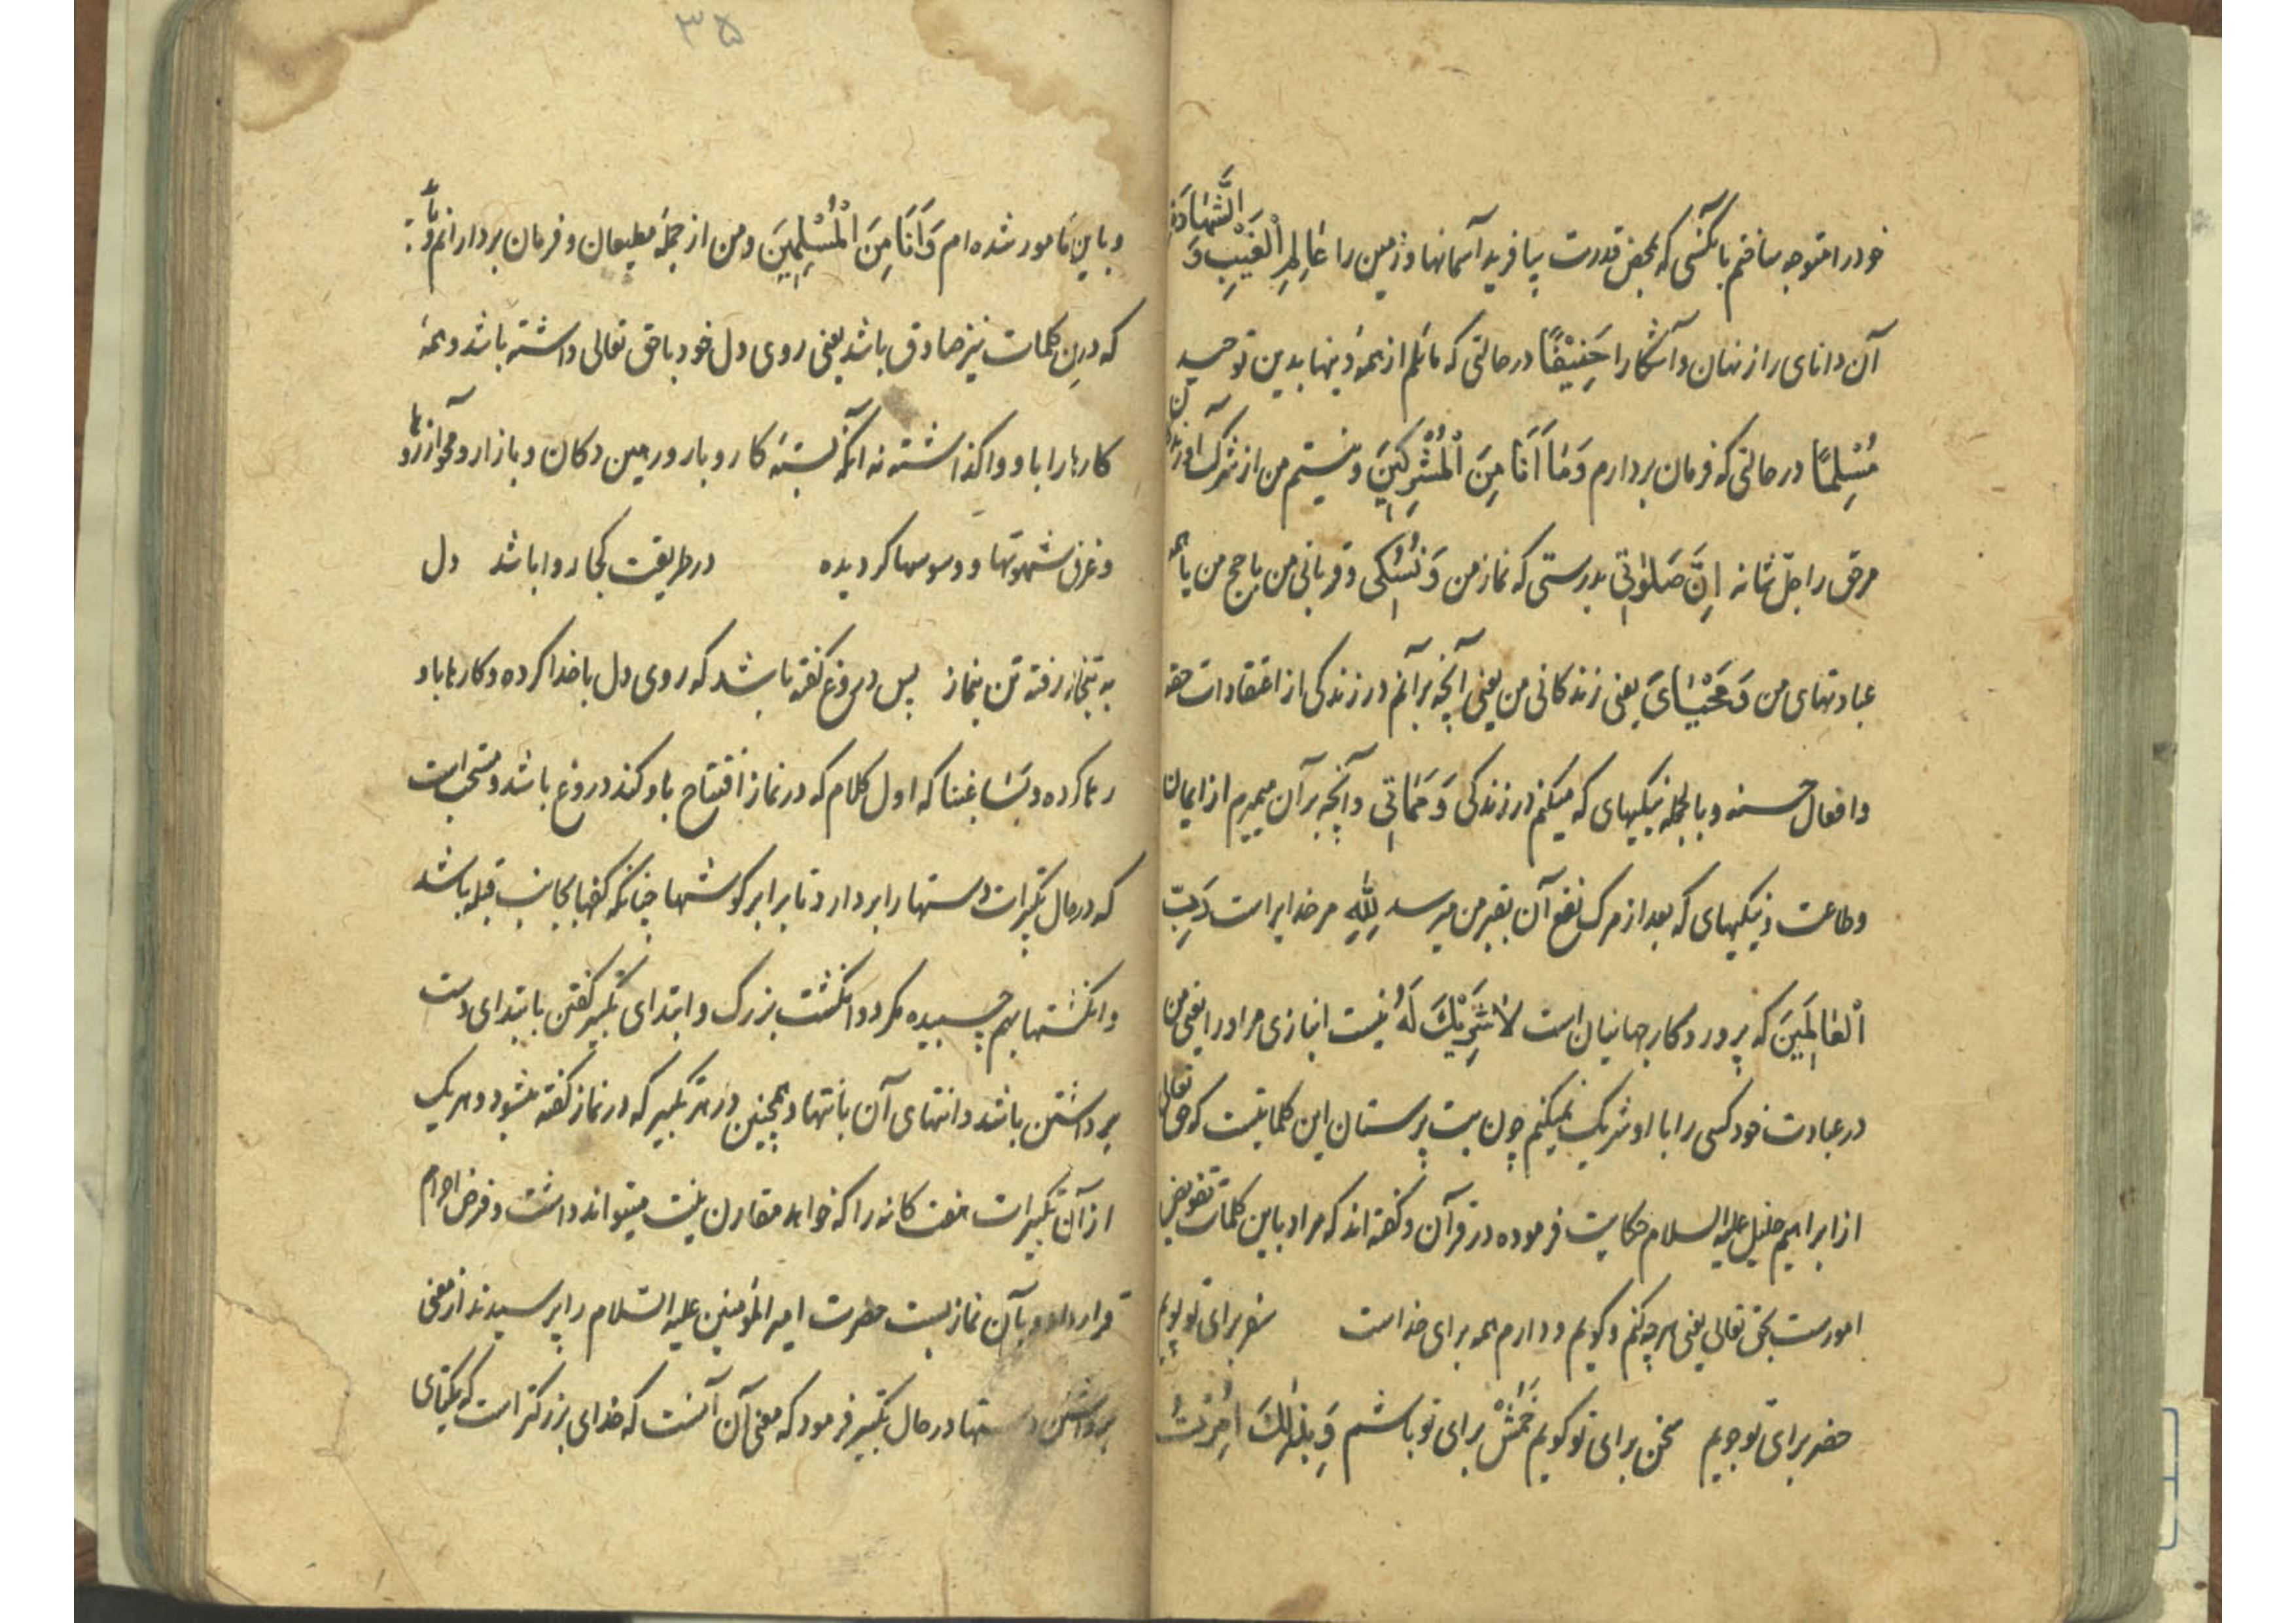 خود را متوجه ساختم بآنکسی که بمحض قدرت بیافرید آسمانها و زمین را عَالِمِ الْغَیْبِ وَ الشَّهَادَةِ
آن دانای راز نهان و آشکارا حَنِیْفًا در حالتی که مائلم از همهٔ دینها بدین توحید
مُسْلِمًا در حالتی که فرمان بردارم وَمَا اَنَا مِنَ الْمُشْرِکِیْنَ و نیستم من از شرک آورندگان
مر حق را جل شانه اِنَّ صَلٰوتِی بدرستی که نماز من وَ نُسُکِی و قربانی من یا حج من یا همه
عبادتهای من وَ مَحْیَایَ یعنی زندکانی من یعنی آنچه برآنم در زندکی از اعتقادات حقه
و افعال حسنه و بالجمله نیکیهای که میکنم در زندکی وَ مَمَاتِی و آنچه بر آن میمیرم از ایمان
و طاعت و نیکیهای که بعد از مرک نفع آن بقبر من میرسد لِلّٰهِ مر خدایراست رَبِّ
الْعَالَمِیْنَ که پروردکار جهانیان است لَا شَرِیْکَ لَهُ نیست انبازی مر اورا یعنی من
در عبادت خود کسی را با او شریک نمیکنم چون بت پرستان این کلماتیست که حق تعالی
از ابراهیم خلیل علیه السلام حکایت فرموده در قرآن و کفته اند که مراد باین کلمات تفویض
امورست بحق تعالی یعنی هرچه کنم و کویم و دارم همه برای خداست سفر برای تو پویم
حضر برای تو جویم سخن برای تو کویم خمش برای تو باشم وَ بِذٰلِکَ اُمِرْتُ
۳۵
و باین مامور شده ام وَ اَنَا مِنَ الْمُسْلِمِیْنَ و من از جملهٔ مطیعان و فرمان بردارانم
که درین کلمات نیز صادق باشد یعنی روی دل خود با حق تعالی داشته باشد و همهٔ
کارها را باو واکذاشته نه آنکه بستهٔ کار و بار و رهین دکان و بازار و محو آرزوها
و غرق شهوتها و وسوسها کردیده در طریقت کجا روا باشد دل
به بتخانه رفته تن بنماز پس دروغ کفته باشد که روی دل با خدا کرده و کارها باو
رها کرده و بَسَا غبنا که اول کلام که در نماز افتتاح باو کند دروغ باشد و مستحب است
که در حال تکبیرات دستها را بردارد تا برابر کوشها چنانکه کفها بجانب قبله باشد
و انکشتها بهم چسپیده مکر دو انکشت بزرک و ابتدای تکبیر کفتن با ابتدای دست
برداشتن باشد و انتهای آن بانتها و همچنین در هر تکبیر که در نماز کفته میشود و هر یک
از آن تکبیرات هفت کانه را که خواهد مقارن نیت میتواند داشت و فرض احرام
قرار داد و بآن نماز بست حضرت امیر المؤمنین علیه السلام را پرسیدند از معنی
برداشتن دستها در حال تکبیر فرمود که معنی آن آنست که خدای بزرکتر است که یکتای